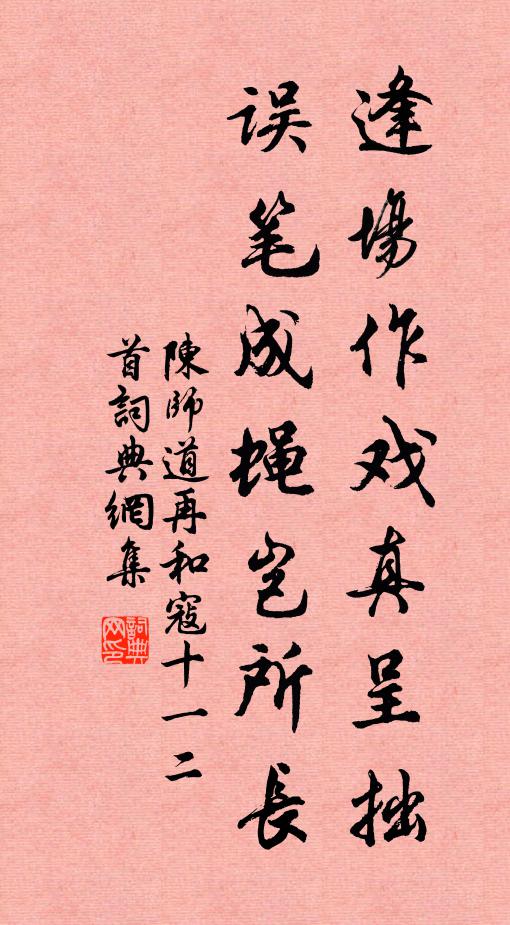 逢場作戏真呈拙
误笔成蝇岂所長
陳師道再和寇十一二
首詞典網集
詞典网印